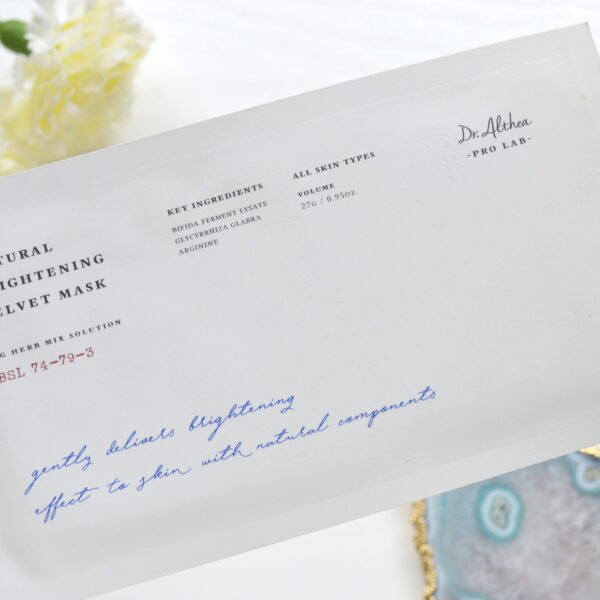 Dr. Althea
-PRO LAB-
KEY INGREDIENTS
BIFIDA FERMENT LYSATE
GLYCYRRHIZA GLABRA
ARGININE
ALL SKIN TYPES
VOLUME
27G / 0.95OZ.
TURAL
IGHTENING
ELVET MASK
G HERB MIX SOLUTION
BSL 74-79-3
gently delivers brightening
effect to skin with natural components